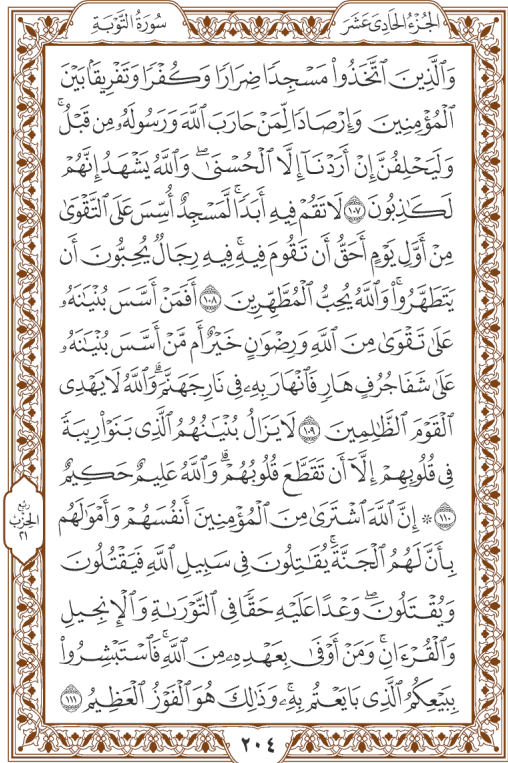 الجزء الحادي عشر
سورة التوبة
وَٱلَّذِينَ ٱتَّخَذُوا۟ مَسْجِدًا ضِرَارًا وَكُفْرًا وَتَفْرِيقًۢا بَيْنَ
ٱلْمُؤْمِنِينَ وَإِرْصَادًا لِّمَنْ حَارَبَ ٱللَّهَ وَرَسُولَهُۥ مِن قَبْلُ ۚ
وَلَيَحْلِفُنَّ إِنْ أَرَدْنَآ إِلَّا ٱلْحُسْنَىٰ ۖ وَٱللَّهُ يَشْهَدُ إِنَّهُمْ
لَكَـٰذِبُونَ ١٠٧ لَا تَقُمْ فِيهِ أَبَدًا ۚ لَّمَسْجِدٌ أُسِّسَ عَلَى ٱلتَّقْوَىٰ
مِنْ أَوَّلِ يَوْمٍ أَحَقُّ أَن تَقُومَ فِيهِ ۚ فِيهِ رِجَالٌ يُحِبُّونَ أَن
يَتَطَهَّرُوا۟ ۚ وَٱللَّهُ يُحِبُّ ٱلْمُطَّهِّرِينَ ١٠٨ أَفَمَنْ أَسَّسَ بُنْيَـٰنَهُۥ
عَلَىٰ تَقْوَىٰ مِنَ ٱللَّهِ وَرِضْوَٰنٍ خَيْرٌ أَم مَّنْ أَسَّسَ بُنْيَـٰنَهُۥ
عَلَىٰ شَفَا جُرُفٍ هَارٍ فَٱنْهَارَ بِهِۦ فِى نَارِ جَهَنَّمَ ۗ وَٱللَّهُ لَا يَهْدِى
ٱلْقَوْمَ ٱلظَّـٰلِمِينَ ١٠٩ لَا يَزَالُ بُنْيَـٰنُهُمُ ٱلَّذِى بَنَوْا۟ رِيبَةً
فِى قُلُوبِهِمْ إِلَّآ أَن تَقَطَّعَ قُلُوبُهُمْ ۗ وَٱللَّهُ عَلِيمٌ حَكِيمٌ
١١٠ ۞ إِنَّ ٱللَّهَ ٱشْتَرَىٰ مِنَ ٱلْمُؤْمِنِينَ أَنفُسَهُمْ وَأَمْوَٰلَهُم
بِأَنَّ لَهُمُ ٱلْجَنَّةَ ۚ يُقَـٰتِلُونَ فِى سَبِيلِ ٱللَّهِ فَيَقْتُلُونَ
وَيُقْتَلُونَ ۖ وَعْدًا عَلَيْهِ حَقًّا فِى ٱلتَّوْرَىٰةِ وَٱلْإِنجِيلِ
وَٱلْقُرْءَانِ ۚ وَمَنْ أَوْفَىٰ بِعَهْدِهِۦ مِنَ ٱللَّهِ ۚ فَٱسْتَبْشِرُوا۟
بِبَيْعِكُمُ ٱلَّذِى بَايَعْتُم بِهِۦ ۚ وَذَٰلِكَ هُوَ ٱلْفَوْزُ ٱلْعَظِيمُ ١١١
ربع
الحزب
٢١
٢٠٤